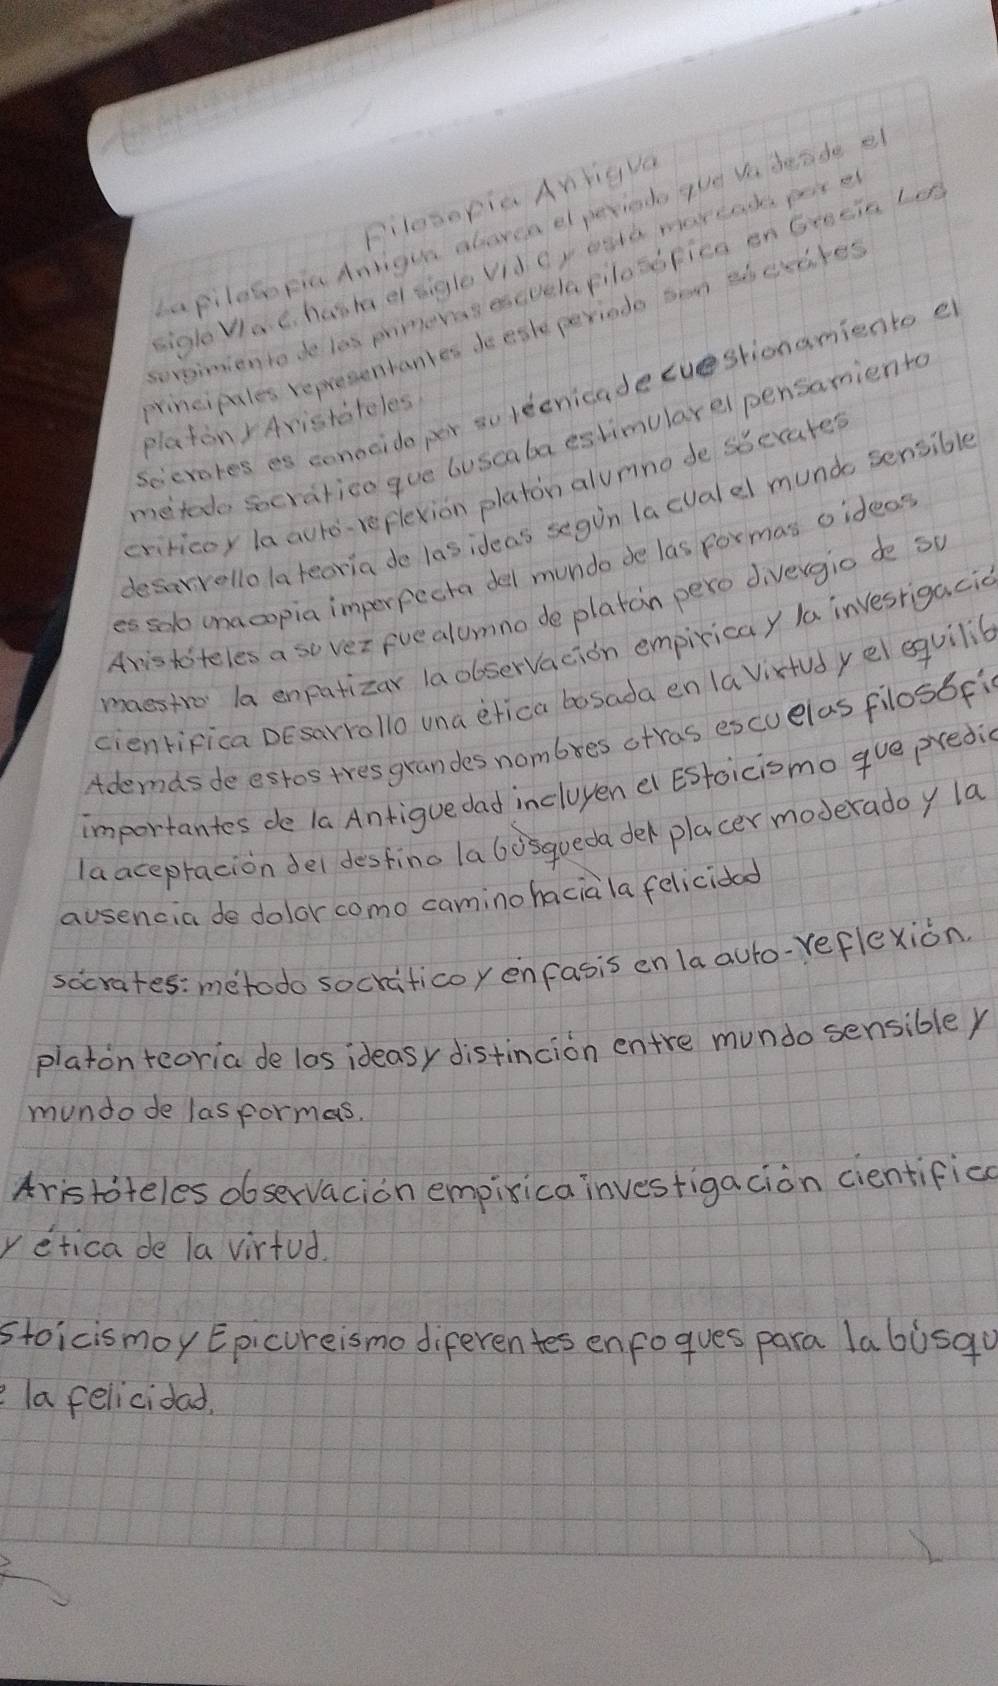 Filosofia Antigua
La filosofia Antigua abarca el periodo que va desde el
siglo VI a.C. hasta el siglo VI d.C y está marcada por el
surgimiento de las primeras escuela filosófica en Grecia Los
principales representantes de este periodo son sócrates
platón y Aristóteles.
Sócrates es conocido por su técnica de cuestionamiento el
método socrático que buscaba estimular el pensamiento
critico y la auto-reflexión platón alumno de sócrates
desarrello la teoria de las ideas según la cual el mundo sensible
es solo una copia imperfecta del mundo de las formas o ideas
Aristóteles a su vez fue alumno de platón pero divergio de su
maestro la enpatizar la observación empirica y la investigació
cientifica DEsarrollo una ética basada en la virtud y el equilib
Ademas de estos tres grandes nombres otras escuelas filosófic
importantes de la Antiguedad incluyen el EStoicismo que predic
la aceptación del destino la búsqueda del placer moderado y la
ausencia de dolor como camino hacia la felicidad
sócrates: método socrático y énfasis en la auto-reflexión.
platón teoria de las ideas y distinción entre mundo sensible y
mundo de las formas.
Aristóteles observación empirica investigación cientifica
y ética de la virtud.
Stoicismo y Epicureismo diferentes enfoques para la búsqu
e la felicidad.